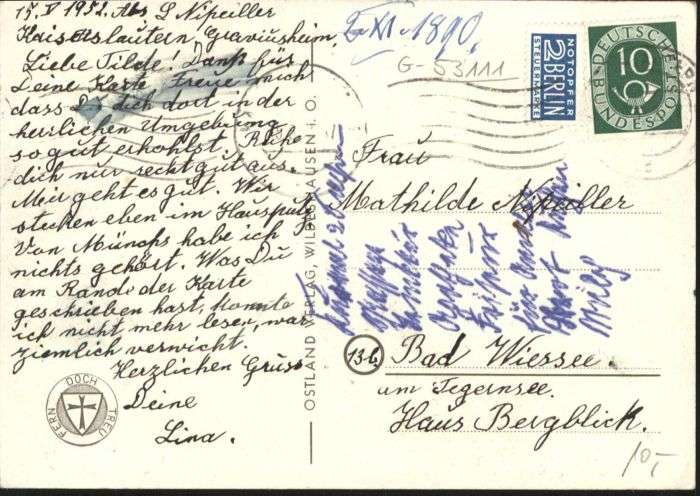 15. V 1952. Abs L Nipeiller
Kaiserslautern, Graviusheim,
Liebe Tilde! Dank für
Deine Karte Freue mich
dass Du dich dort in der
herrlichen Umgebung
so gut erhohlst. Ruhe
dich nur recht gut aus.
Mir geht es gut. Wir
stecken eben im Hausputz
Von Münchs habe ich
nichts gehört. Was Du
am Rande der Karte
geschrieben hast, konnte
ich nicht mehr lesen, war
ziemlich verwicht.
Herzlichen Gruss
Deine
Lina.
FERN DOCH TREU
OSTLAND VERLAG, WILDESHAUSEN I. O.
XI. 1890.
G-53111
NOTOPFER
2 BERLIN
STEUERMARKE
DEUTSCHE
BUNDESPOST
10
Frau
Mathilde Nipeiller
13b
Bad Wiessee.
am Tegernsee.
Haus Bergblick.
Kümmel
Apotheker
Friseur
10,-